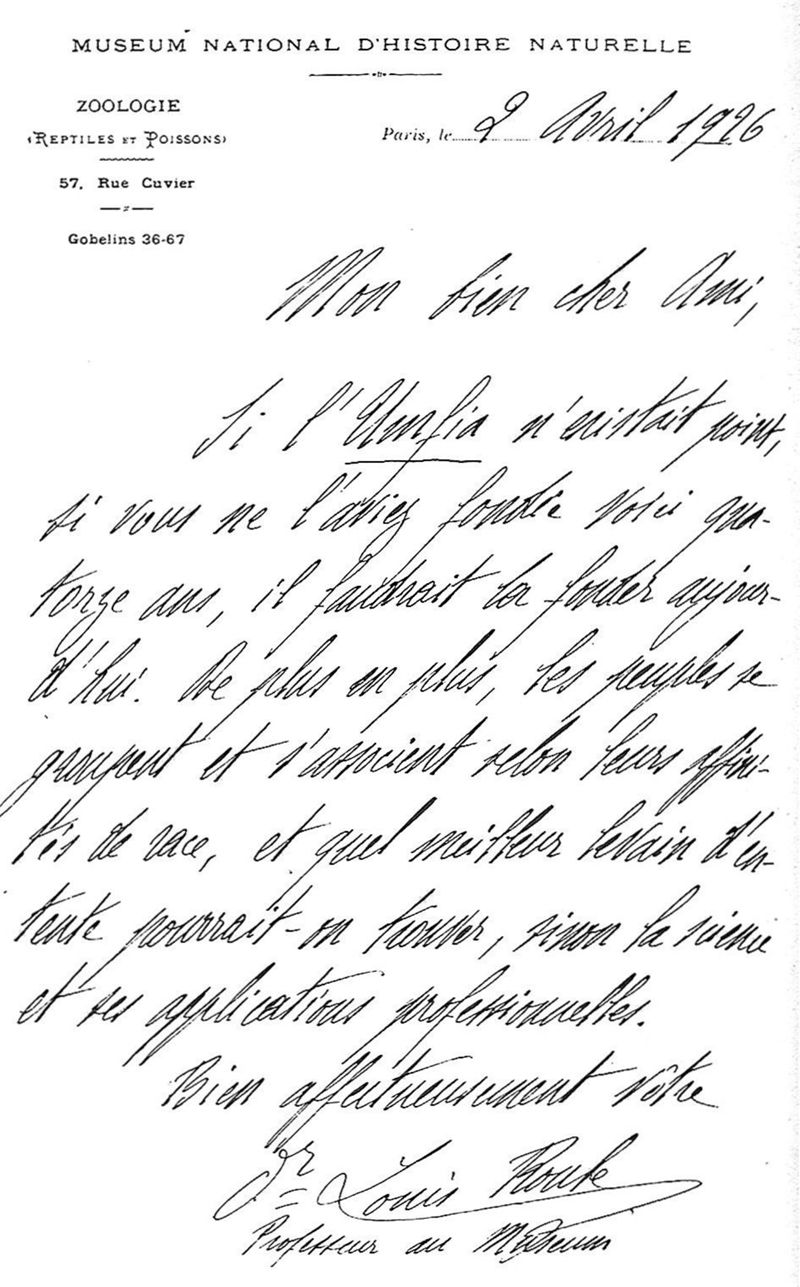 MUSEUM NATIONAL D'HISTOIRE NATURELLE
ZOOLOGIE
(REPTILES ET POISSONS)
57, Rue Cuvier
Gobelins 36-67
Paris, le 2 Avril 1926
Mon bien cher Ami,
Si l'Umfia n'existait point,
si vous ne l'aviez fondée voici qua-
torze ans, il faudrait la fonder aujour-
d'hui. De plus en plus, les peuples se
groupent et s'associent selon leurs affini-
tés de race, et quel meilleur levain d'en-
tente pourrait-on trouver, sinon la science
et ses applications professionnelles.
Bien affectueusement vôtre
Dr Louis Roule
Professeur au Muséum